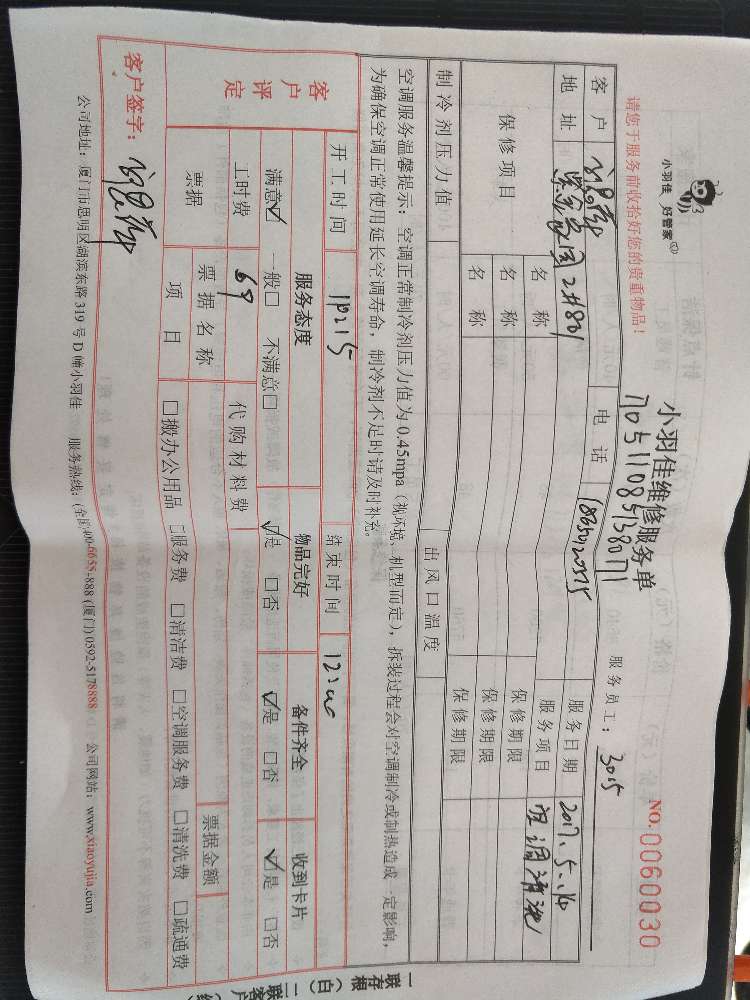 小羽佳 好管家
小羽佳维修服务单
NO.0060030
请您于服务前收拾好您的贵重物品!
服务员工: 3015
客户 电话 服务日期 2017.5.14
地址 紫金家园2#801 服务项目 空调清洗
保修项目 名称 保修期限
名称 保修期限
名称 保修期限
制冷剂压力值 出风口温度
空调服务温馨提示: 空调正常制冷剂压力值为0.45mpa (视环境、机型而定), 拆装过程会对空调制冷或制热造成一定影响,
为确保空调正常使用延长空调寿命, 制冷剂不足时请及时补充。
开工时间 结束时间 12:00
客户评定 服务态度 物品完好 备件齐全 收到卡片
满意☑ 一般□ 不满意□ ☑是 □否 ☑是 □否 ☑是 □否
工时费 69 代购材料费
票据 票据名称 票据金额
项目 □搬办公用品 □服务费 □清洁费 □空调服务费 □清洗费 □疏通费
客户签字:
公司地址: 厦门市思明区湖滨东路319号D幢小羽佳 服务热线: (全国)400-6655-888 (厦门) 0592-5178888 公司网站: www.xiaoyujia.com
一联存根(白) 二联客户